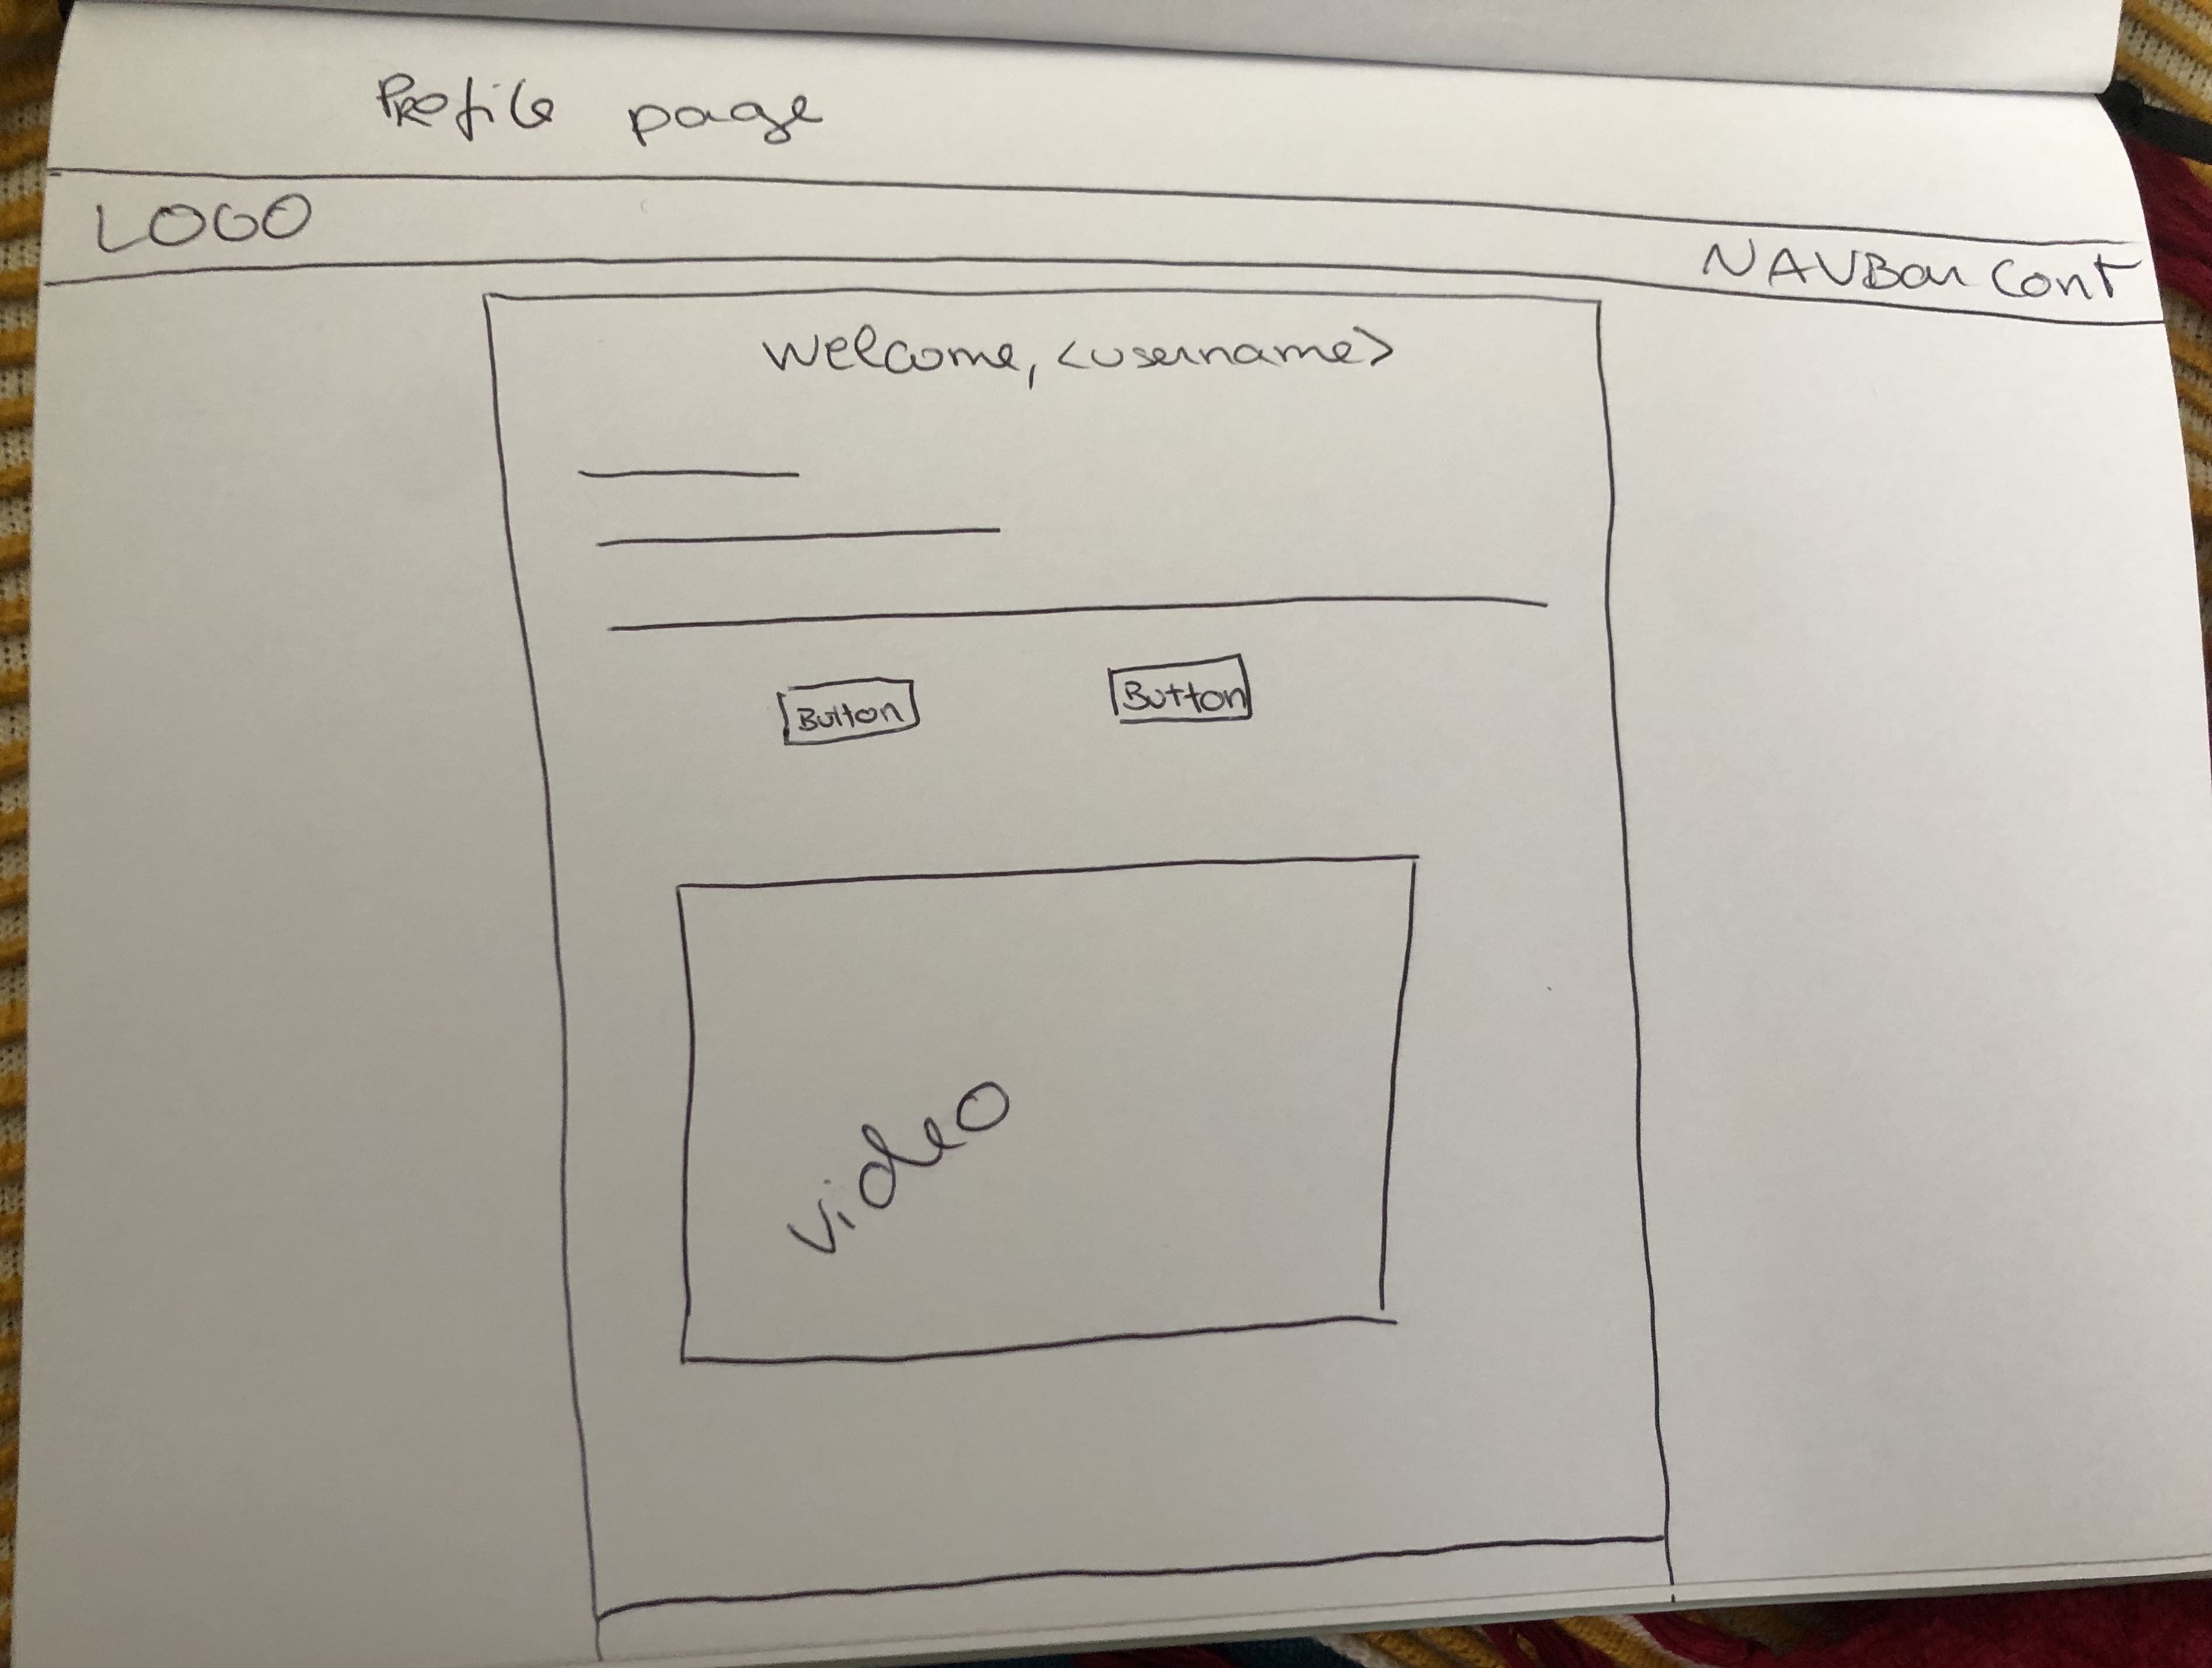 Profile page
LOGO
NAVBar Cont
Welcome, <username>
Button Button
video